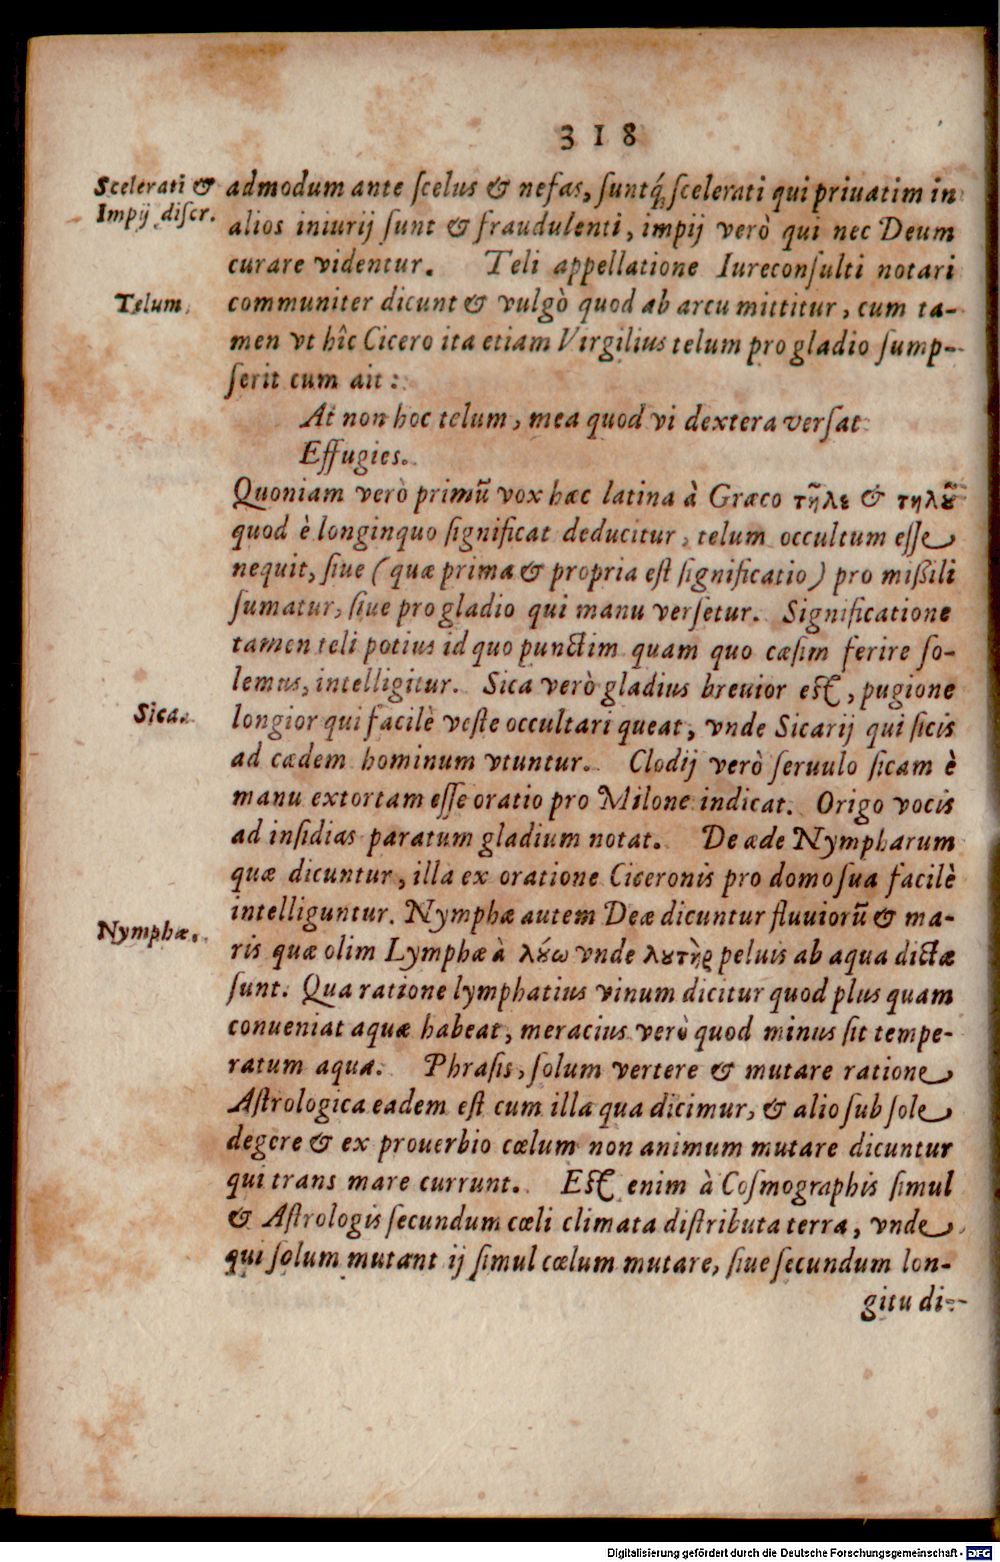 318
Scelerati &
Impij discr.
admodum ante ſcelus & nefas, ſuntq́; ſcelerati qui priuatim in
alios iniurij ſunt & fraudulenti, impij verò qui nec Deum
curare videntur. Teli appellatione Iureconſulti notari
Telum.
communiter dicunt & vulgò quod ab arcu mittitur, cum ta-
men vt hîc Cicero ita etiam Virgilius telum pro gladio ſump-
ſerit cum ait:
At non hoc telum, mea quod vi dextera verſat
Effugies.
Quoniam verò primũ vox hæc latina à Græco τῆλε & τηλȣ͂
quod è longinquo ſignificat deducitur, telum occultum eſſe
nequit, ſiue (quæ prima & propria eſt ſignificatio) pro mißili
ſumatur, ſiue pro gladio qui manu verſetur. Significatione
tamen teli potius id quo punctim quam quo cæſim ferire ſo-
lemus, intelligitur. Sica verò gladius breuior eſt, pugione
Sica.
longior qui facilè veſte occultari queat, vnde Sicarij qui ſicis
ad cædem hominum vtuntur. Clodij verò ſeruulo ſicam è
manu extortam eſſe oratio pro Milone indicat. Origo vocis
ad inſidias paratum gladium notat. De æde Nympharum
quæ dicuntur, illa ex oratione Ciceronis pro domo ſua facilè
intelliguntur. Nymphæ autem Deæ dicuntur fluuiorũ & ma-
Nymphæ.
ris quæ olim Lymphæ à λȣ́ω vnde λȣτὴρ peluis ab aqua dictæ
ſunt. Qua ratione lymphatius vinum dicitur quod plus quam
conueniat aquæ habeat, meracius verò quod minus ſit tempe-
ratum aqua. Phraſis, ſolum vertere & mutare ratione
Aſtrologica eadem eſt cum illa qua dicimur, & alio ſub ſole
degere & ex prouerbio cœlum non animum mutare dicuntur
qui trans mare currunt. Eſt enim à Coſmographis ſimul
& Aſtrologis ſecundum cœli climata diſtributa terra, vnde
qui ſolum mutant ij ſimul cœlum mutare, ſiue ſecundum lon-
gitu di-
Digitalisierung gefördert durch die Deutsche Forschungsgemeinschaft - DFG